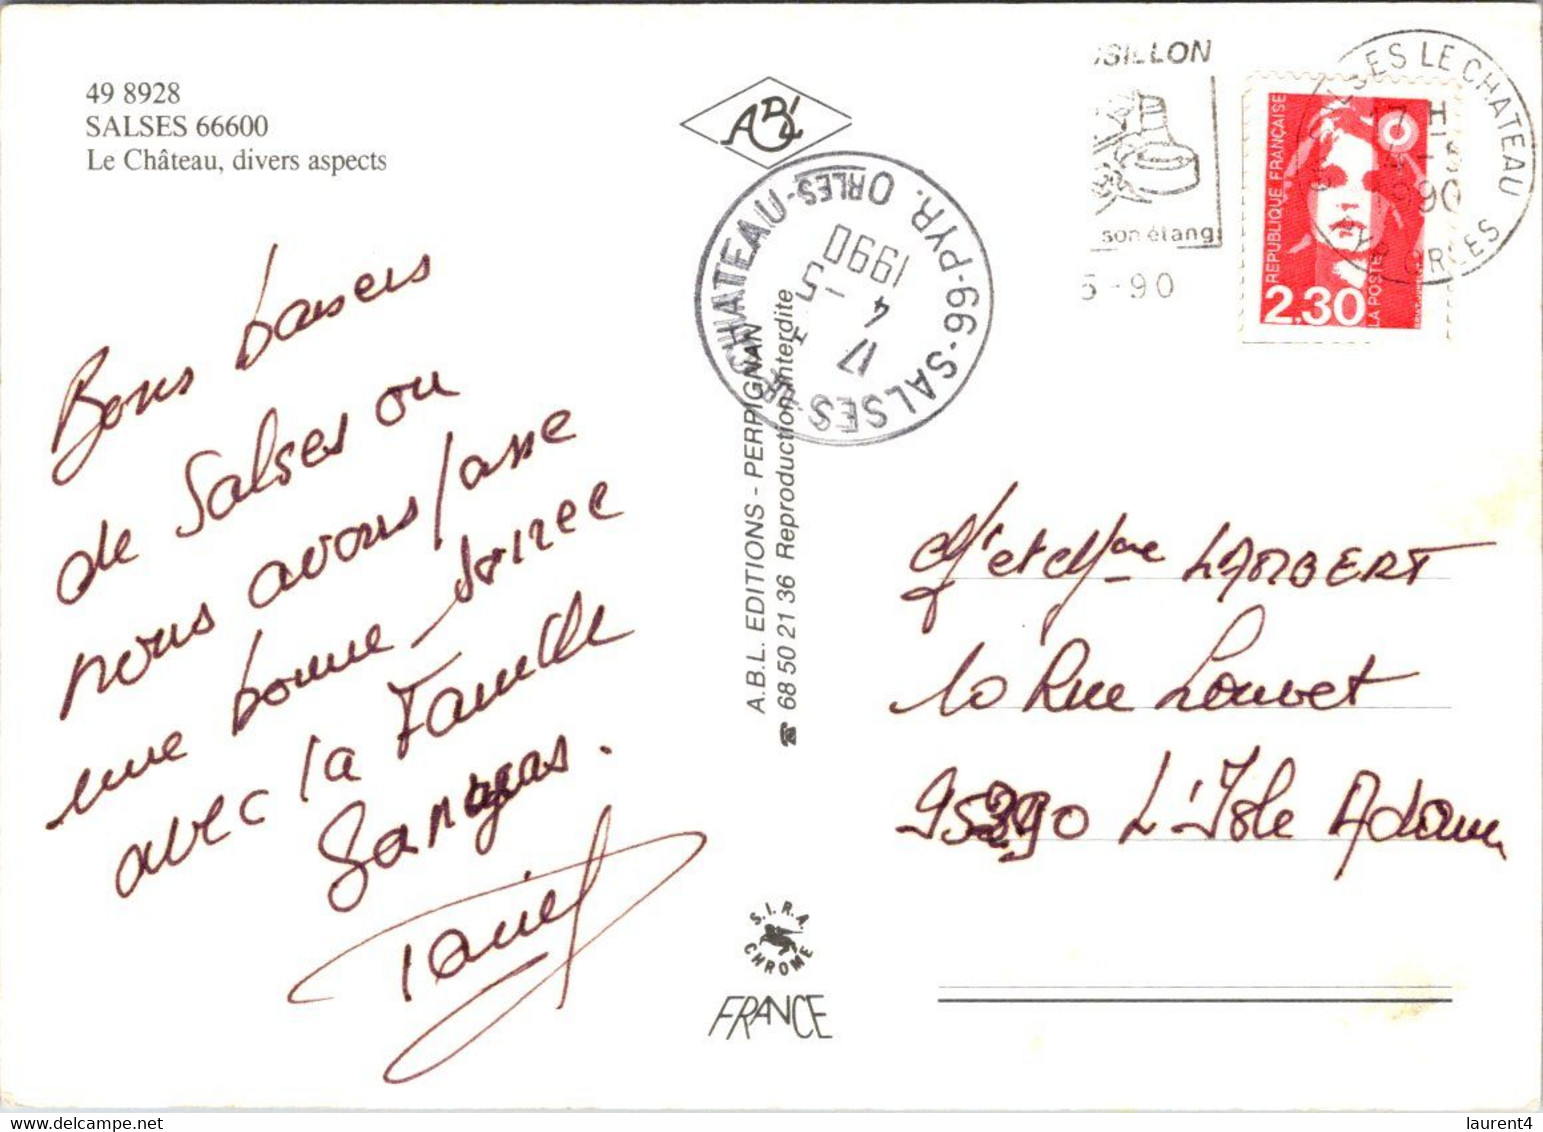 49 8928
SALSES 66600
Le Château, divers aspects
ABL
SILLON
son étang
5-90
SALSES LE CHATEAU
17 H
4-5
1990
PYR. ORLES
REPUBLIQUE FRANÇAISE
LA POSTE
2.30
66-SALSES-LE-CHATEAU
PYR. ORLES
17 H
4 -5
1990
Bons baisers
de Salses ou
nous avons passe
une bonne soiree
avec la Famille
Daniel
A.B.L. EDITIONS - PERPIGNAN
☎ 68 50 21 36 Reproduction interdite
S.I.R.A.
CHROME
FRANCE
Mr et Mme LAMBERT
10 Rue Louvet
95290 L'Isle Adam
laurent4